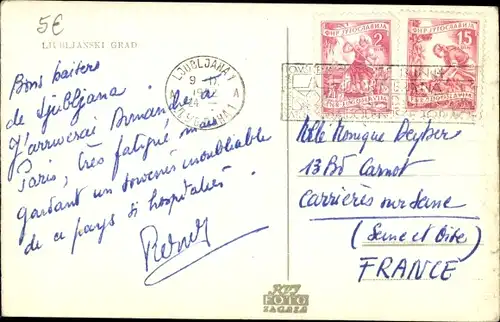 5€
LJUBLJANSKI GRAD
Bons baisers
de Ljubljana.
J'arriverai Dimanche à
Paris, très fatigué mais
gardant un souvenir inoubliable
de ce pays si hospitalier.
LJUBLJANA 1
A
ФНР ЈУГОСЛАВИЈА
2
ФНР ЈУГОСЛАВИЈА
15
FNR JUGOSLAVIJA
Melle Monique
13 Bd Carnot
Carrières sur Seine
(Seine et Oise)
FRANCE
FOTO
ZAGREB